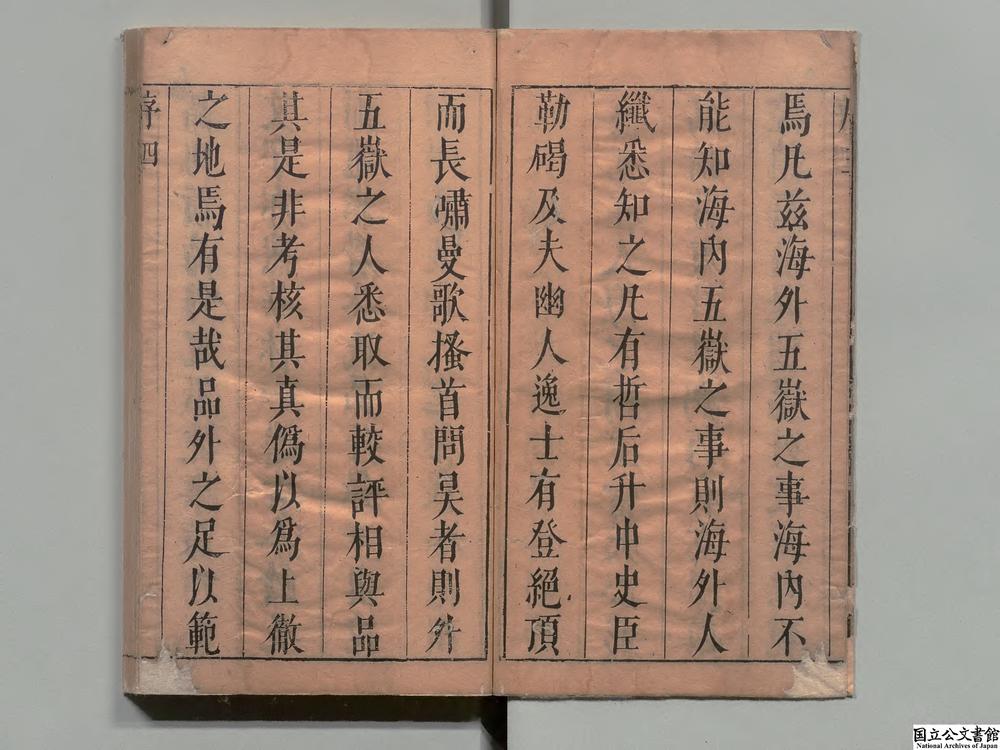 焉凡茲海外五嶽之事海内不
能知海内五嶽之事則海外人
纖悉知之凡有哲后升中史臣
勒碣及夫幽人逸士有登絕頂
而長嘯曼歌搔首問昊者則外
五嶽之人悉取而較評相與品
其是非考核其真僞以爲上徹
之地焉有是哉品外之足以範
序四
国立公文書館
National Archives of Japan